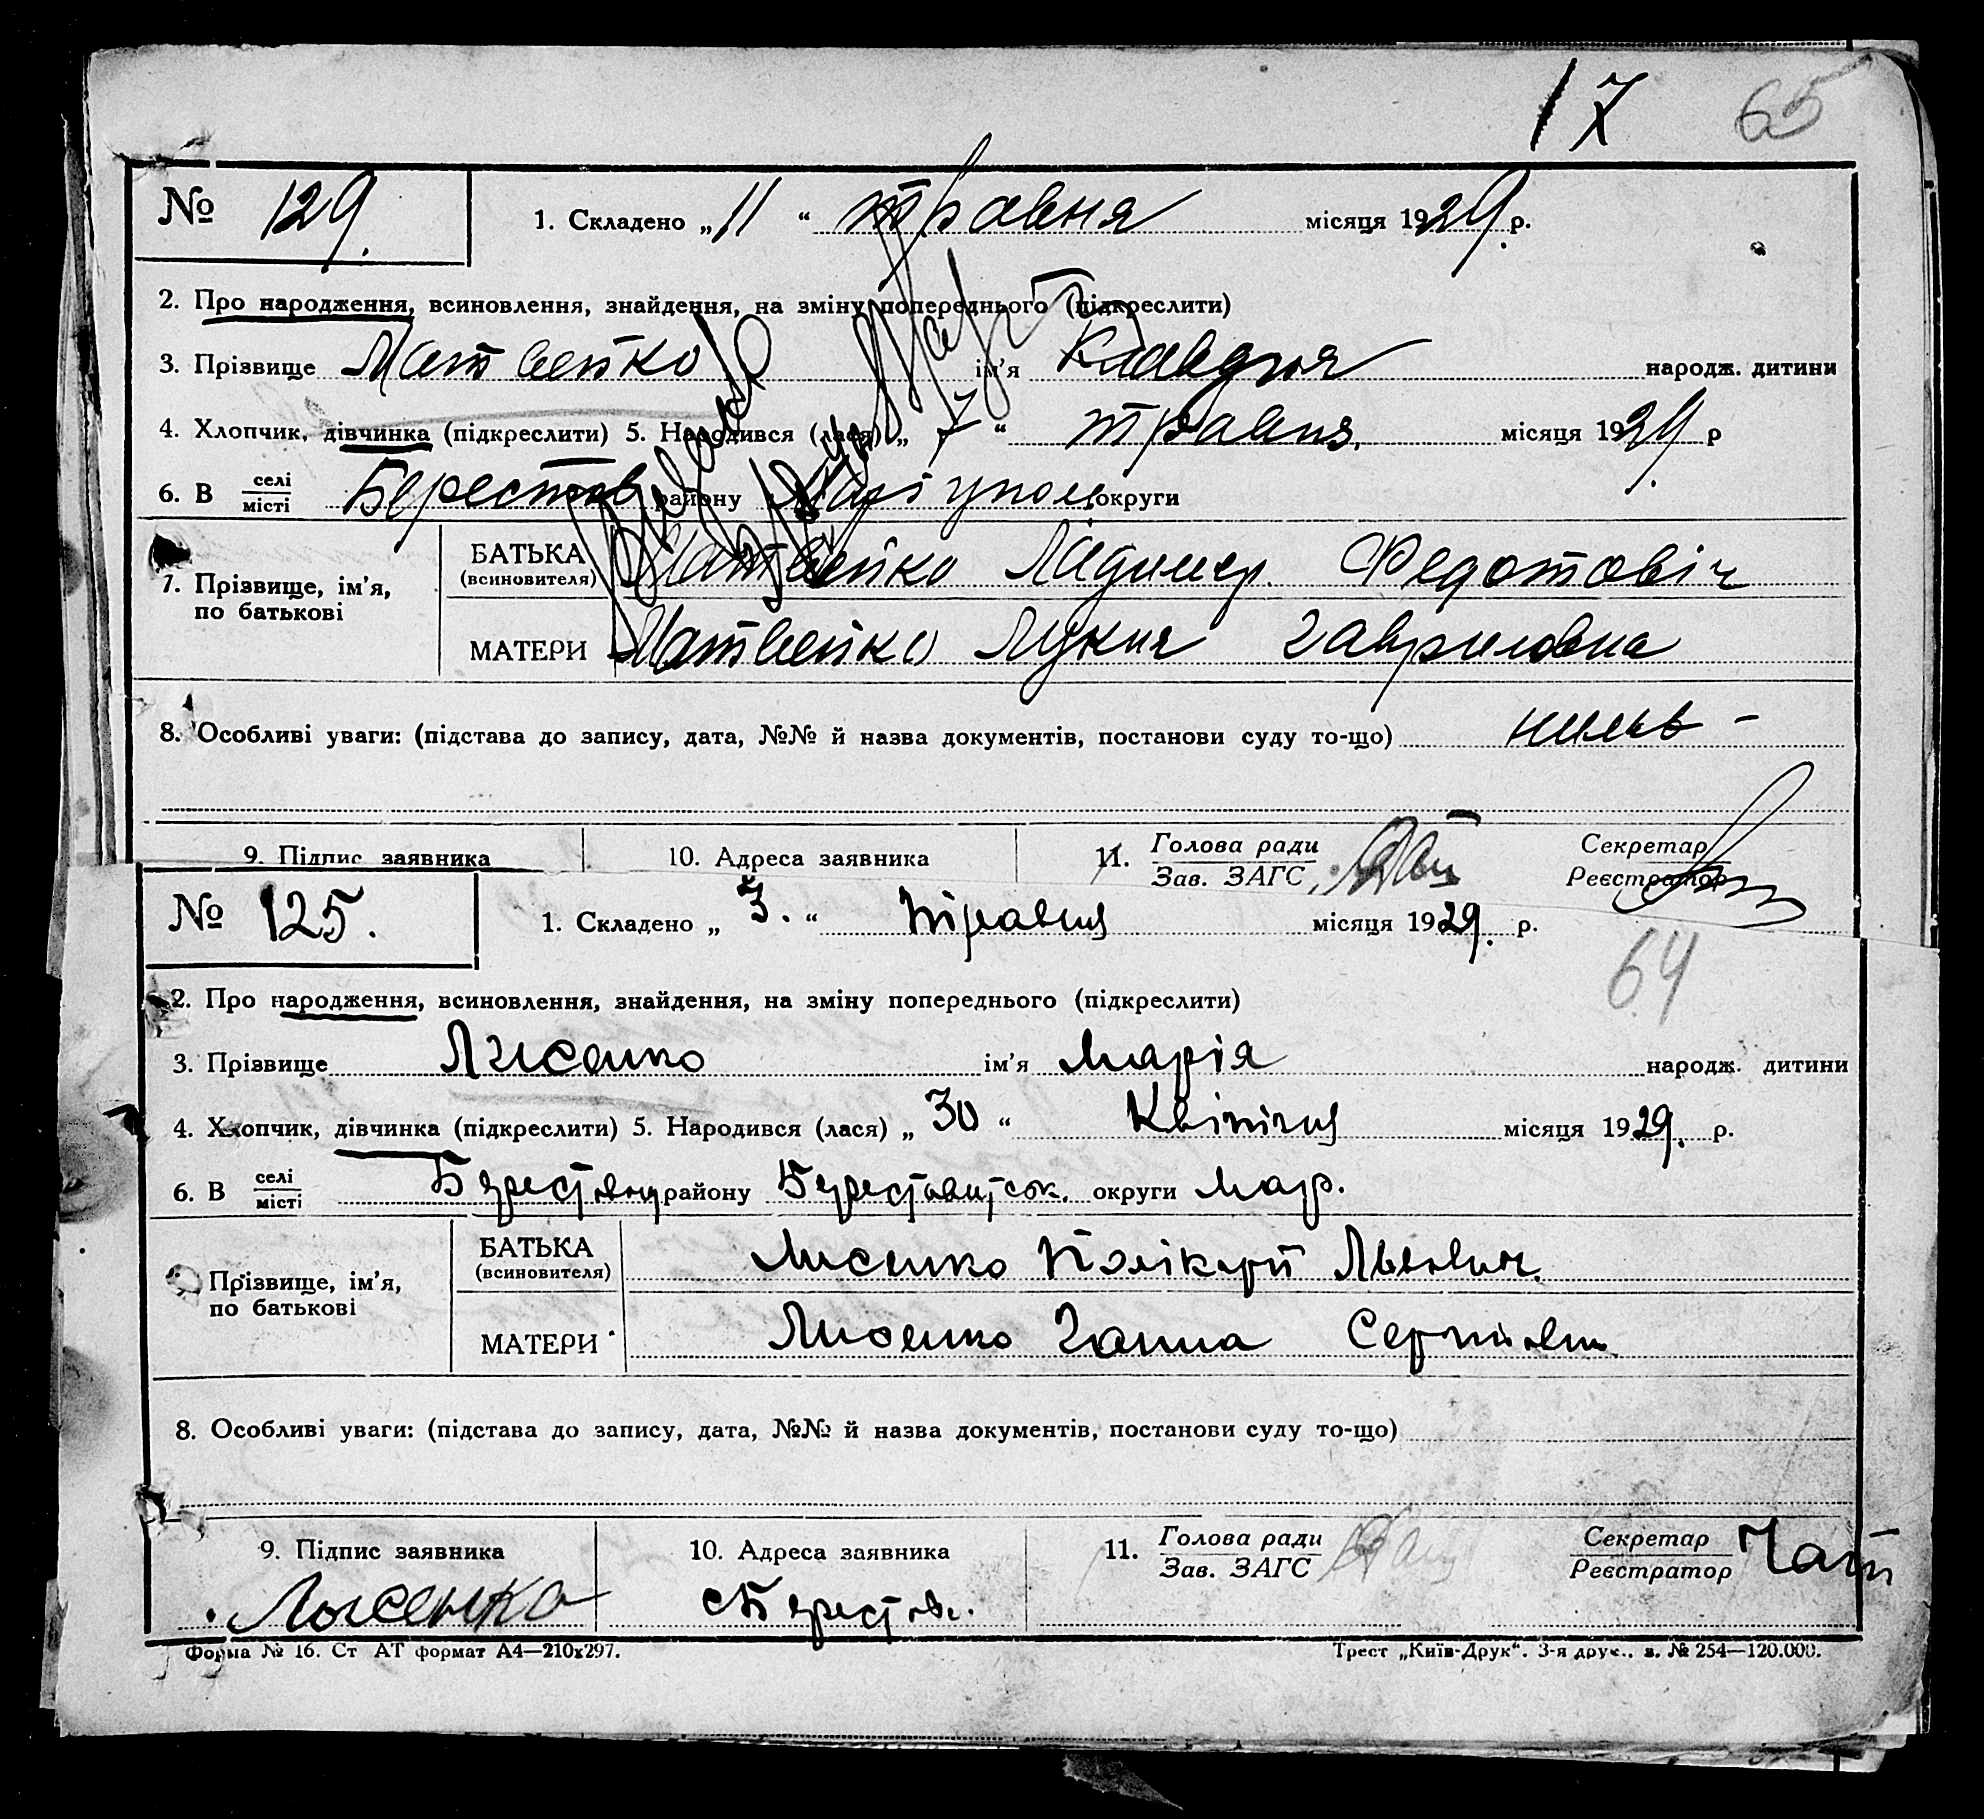 17 65
№ 129. 1. Складено „11“ травня місяця 1929 р.
2. Про народження, всиновлення, знайдення, на зміну попереднього (підкреслити)
3. Прізвище Матвейко ім'я Клавдия народж. дитини
4. Хлопчик, дівчинка (підкреслити) 5. Народився (лася) „7“ травня, місяця 1929 р
6. В селі/місті Берестов району Маріупол. округи
7. Прізвище, ім'я, по батькові
БАТЬКА (всиновителя) Матвейко Ладимер Федотовіч
МАТЕРИ Матвейко Лукия Гавриловна
8. Особливі уваги: (підстава до запису, дата, №№ й назва документів, постанови суду то-що)
9. Підпис заявника 10. Адреса заявника 11. Голова ради/Зав. ЗАГС Секретар/Реєстратор
№ 125. 1. Складено „3.“ травня місяця 1929. р.
64
2. Про народження, всиновлення, знайдення, на зміну попереднього (підкреслити)
3. Прізвище Лисенко ім'я Марія народж. дитини
4. Хлопчик, дівчинка (підкреслити) 5. Народився (лася) „30“ Квітня місяця 1929. р.
6. В селі/місті району округи Мар.
Прізвище, ім'я, по батькові
БАТЬКА (всиновителя) Лисенко Полікарп Львович.
МАТЕРИ Лисенко Ганна
8. Особливі уваги: (підстава до запису, дата, №№ й назва документів, постанови суду то-що)
9. Підпис заявника 10. Адреса заявника 11. Голова ради/Зав. ЗАГС Секретар/Реєстратор
Лысенко
Форма № 16. Ст АТ формат А4—210х297. Трест „Київ-Друк“. 3-я друк.. з. № 254—120.000.